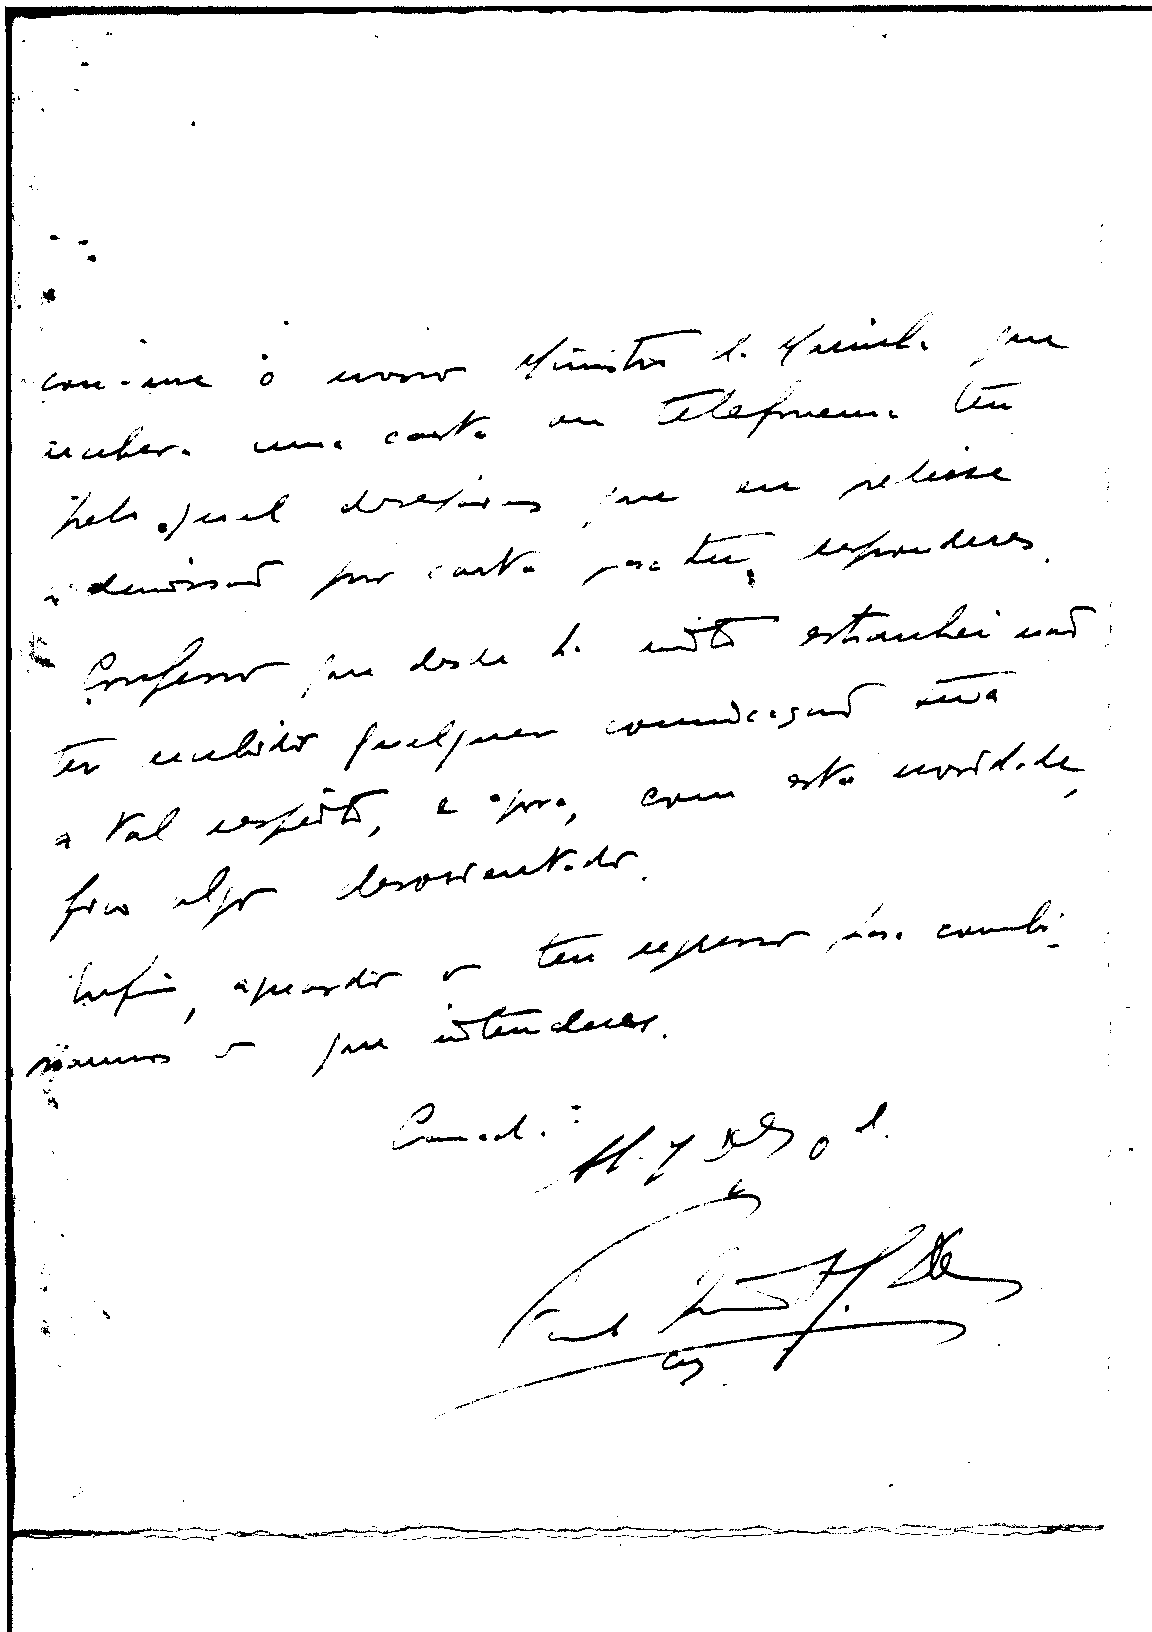 cou-me o nosso Ministro da Marinha que
recebera uma carta ou telefonema teu
pela qual desejavas que eu pedisse
a demissão por carta para tu responderes.
Confesso que desde há muito estranhei não
ter recebido qualquer comunicação tua
a tal respeito, e agora, com esta novidade,
fico algo desorientado.
Enfim, aguardo o teu regresso para combi-
narmos o que intenderes.
Camarada